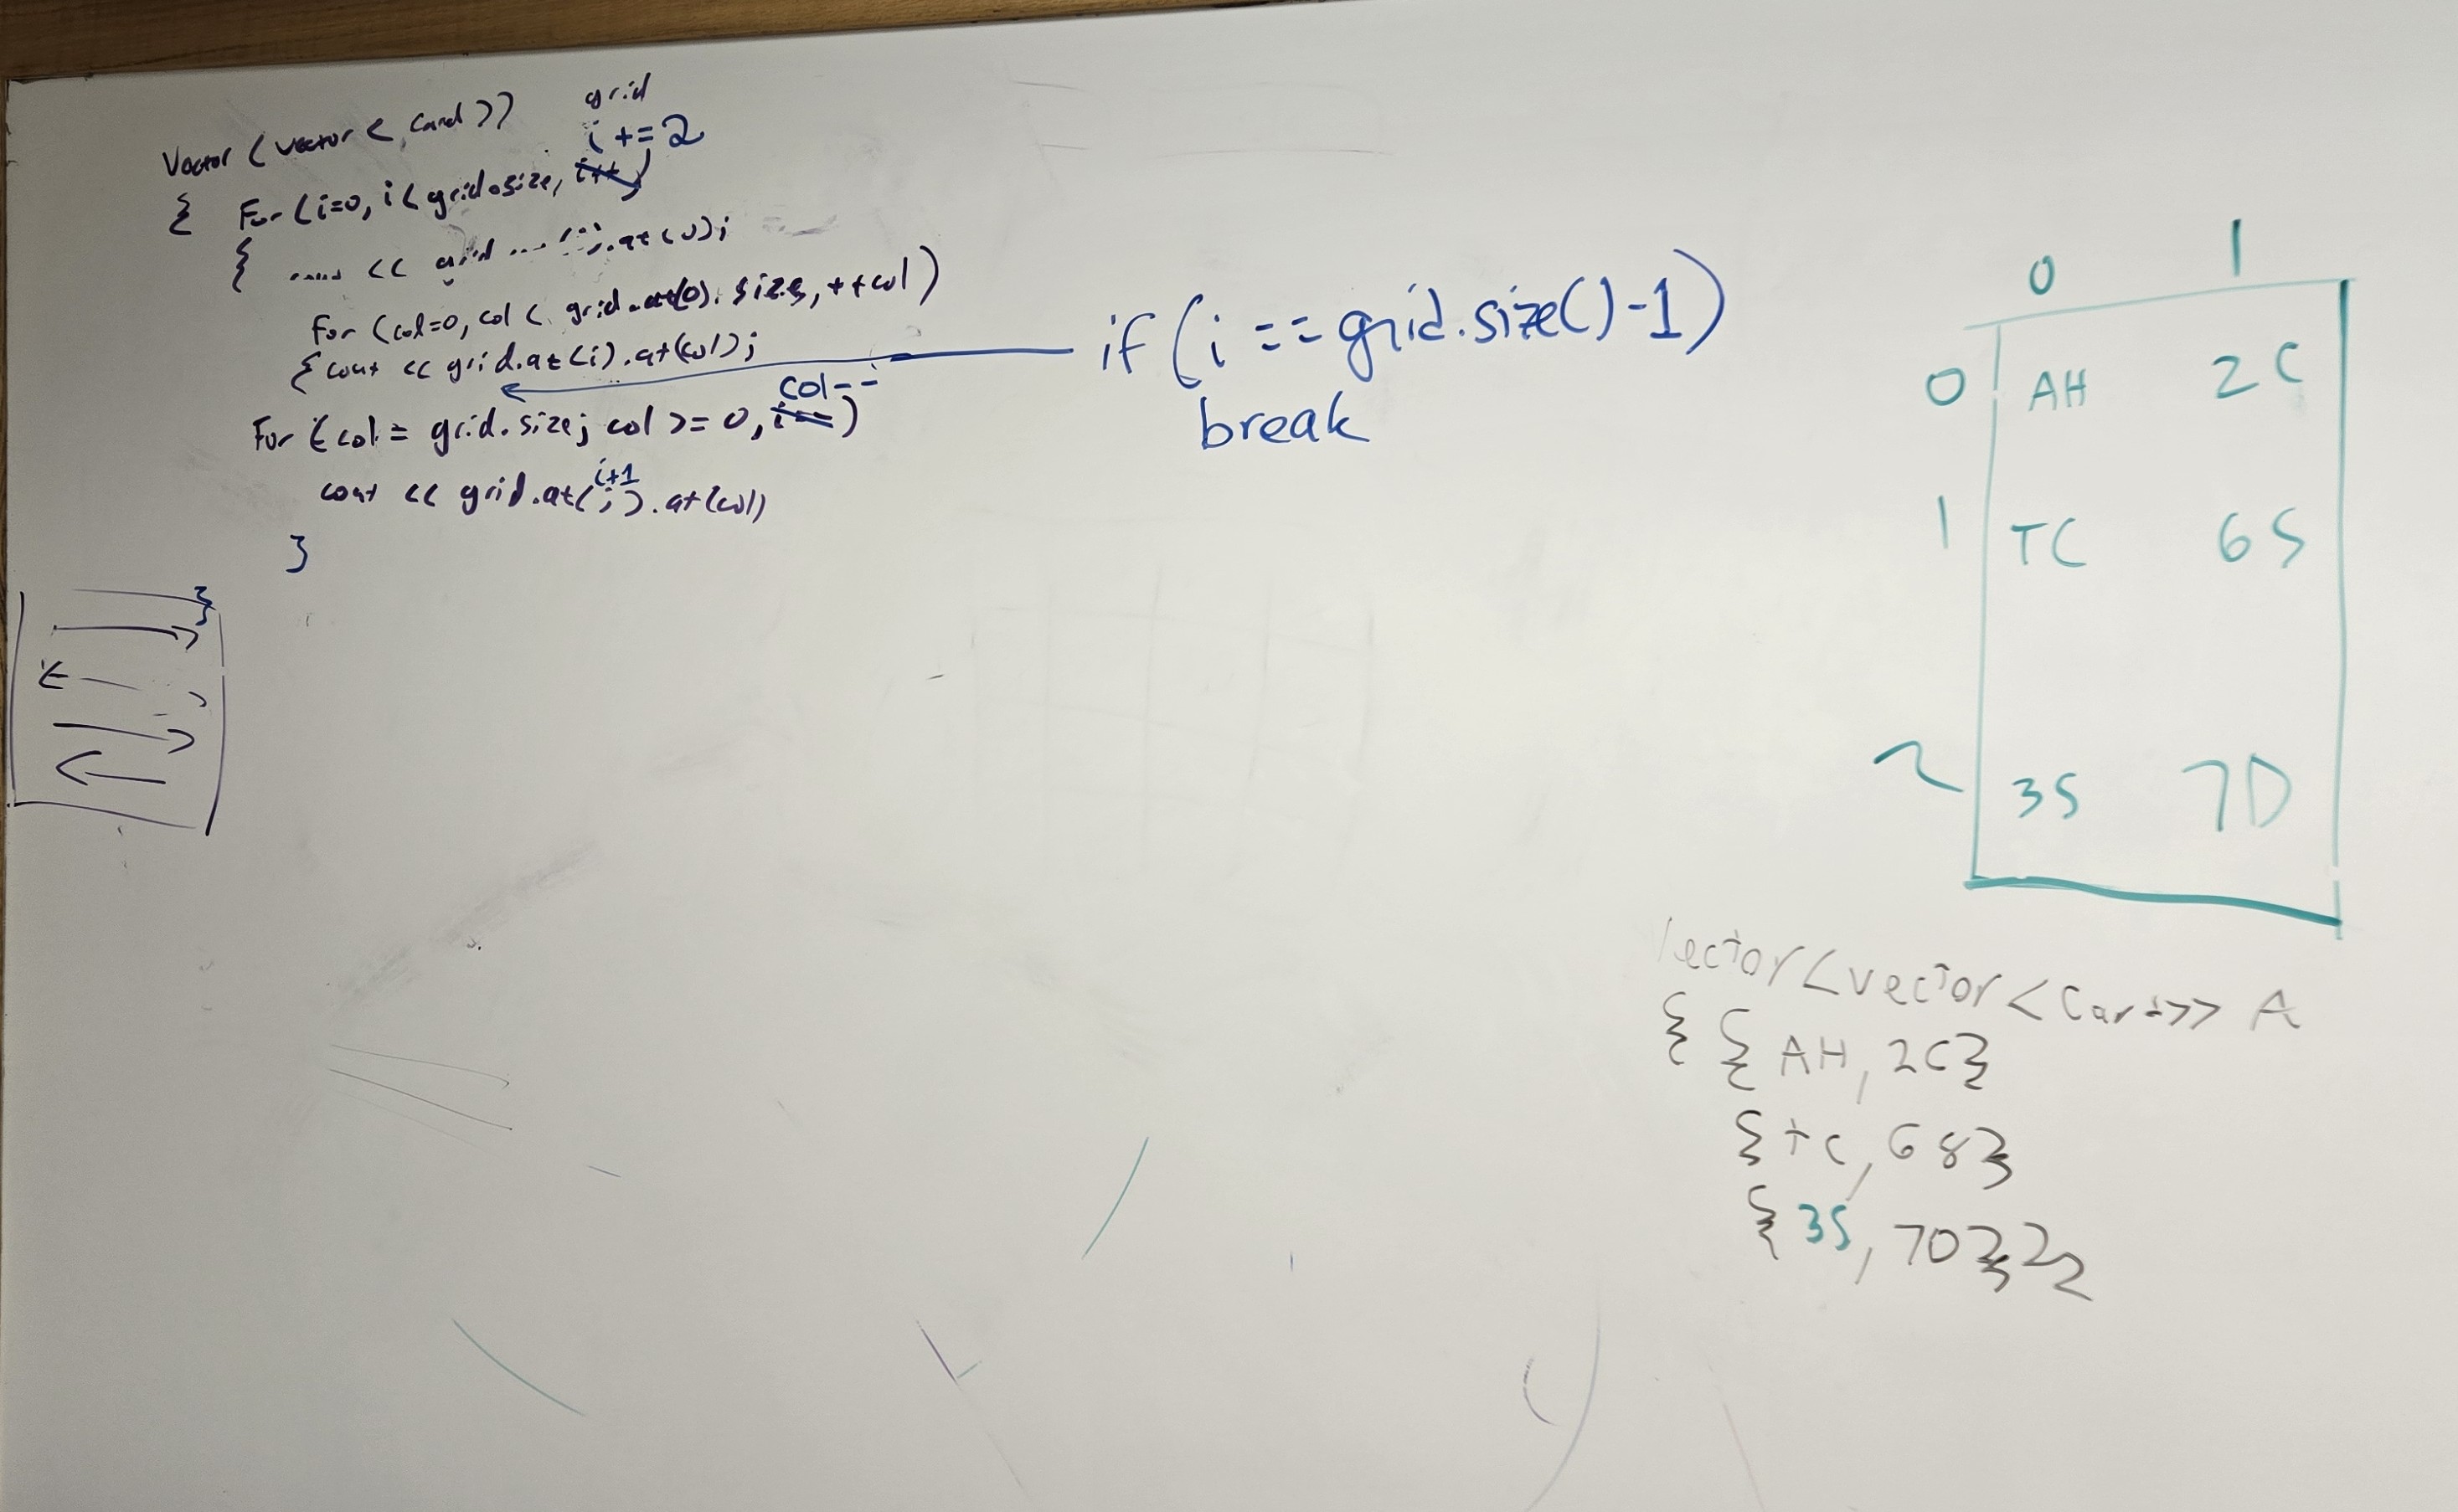 Vector < vector < Card >> grid
i += 2
{ For (i=0, i < grid.size, i++)
{ << grid .at(0);
For (col=0, col < grid.at(0).size, ++col)
{ cout << grid.at(i).at(col);
if (i == grid.size()-1)
break
col--
For (col = grid.size; col >= 0, i--)
i+1
cout << grid.at(i).at(col)
}
}
0 1
0 AH 2C
1 TC 6S
2 3S 7D
Vector<vector<Card>> A
{ { AH, 2C}
{ TC, 6S}
{ 3S, 7D}}